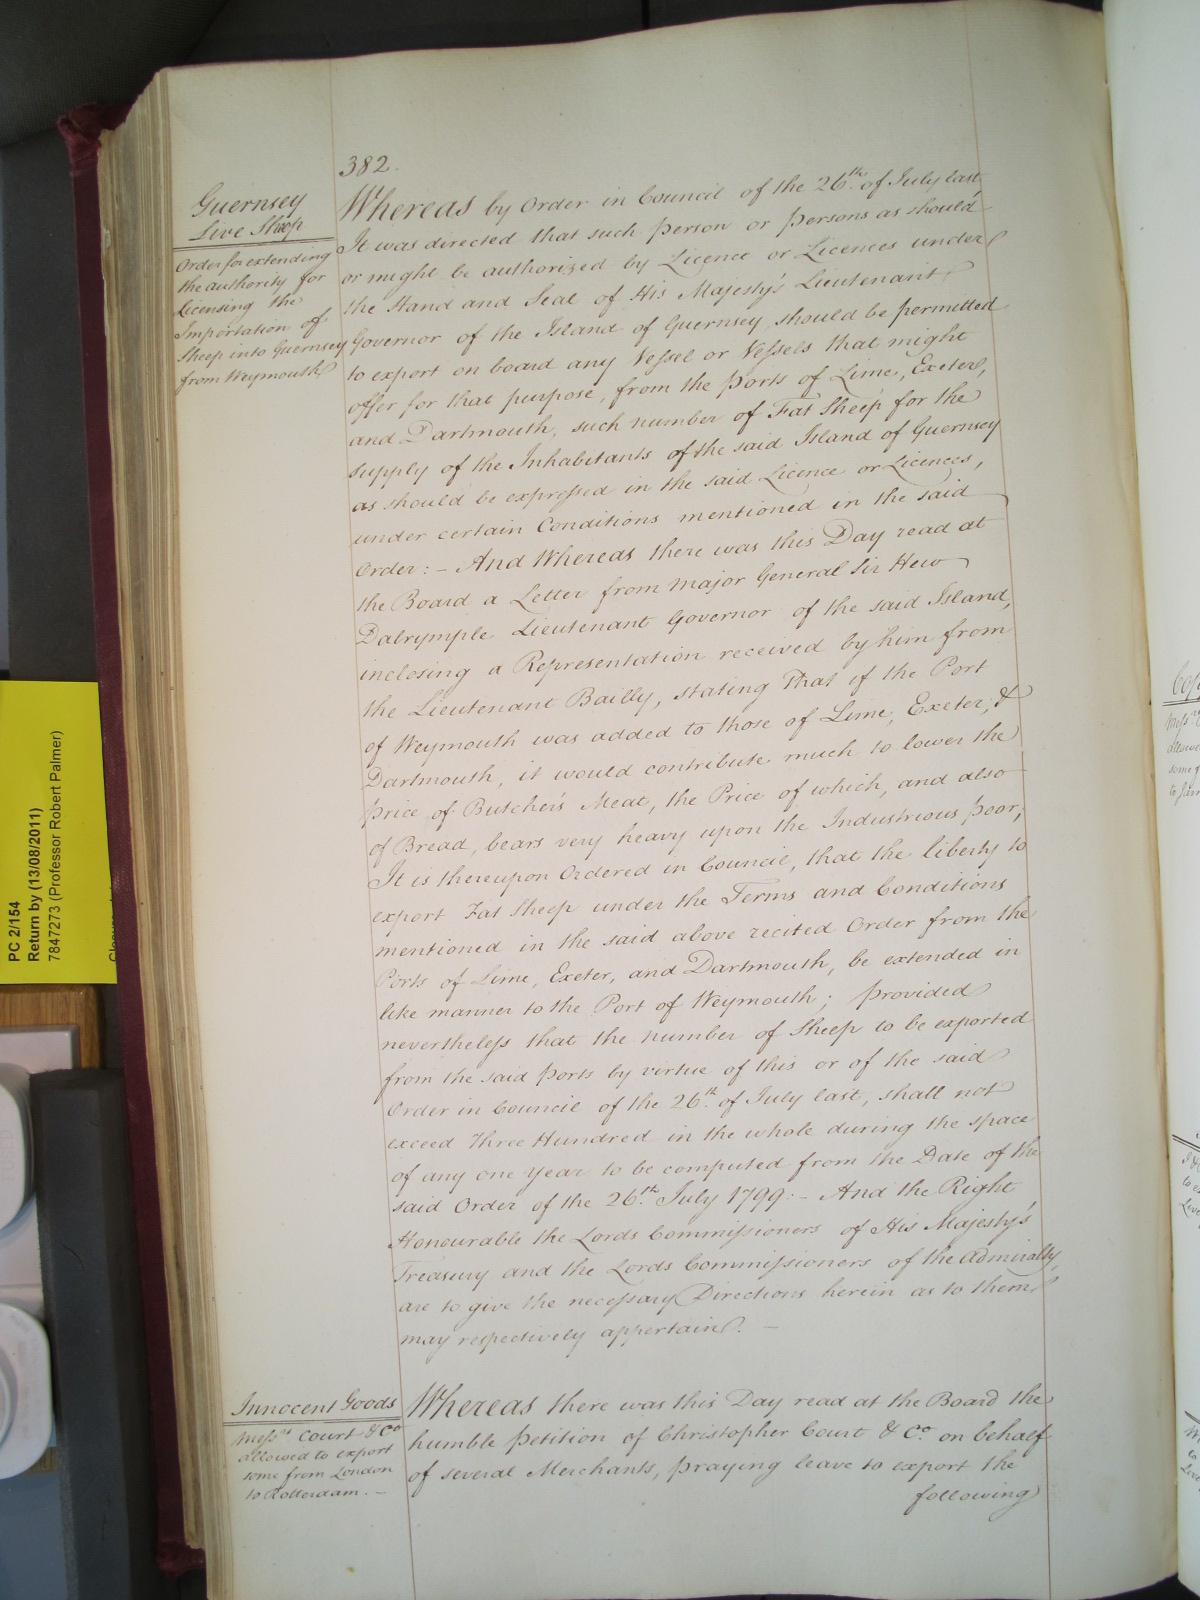 382.
Guernsey
Live Sheep
Order for extending
the authority for
licensing the
Importation of
Sheep into Guernsey
from Weymouth
Whereas by Order in Council of the 26th. of July last
It was directed that such person or persons as should
or might be authorized by Licence or Licences under
the Hand and Seal of His Majesty's Lieutenant
Governor of the Island of Guernsey, should be permitted
to export on board any Vessel or Vessels that might
offer for that purpose, from the ports of Lime, Exeter,
and Dartmouth, such number of Fat Sheep for the
supply of the Inhabitants of the said Island of Guernsey
as should be expressed in the said Licence or Licences,
under certain Conditions mentioned in the said
Order: – And Whereas there was this Day read at
the Board a Letter from Major General Sir Hew
Dalrymple Lieutenant Governor of the said Island,
inclosing a Representation received by him from
the Lieutenant Bailly, stating that if the Port
of Weymouth was added to those of Lime, Exeter, &
Dartmouth, it would contribute much to lower the
price of Butcher's Meat, the Price of which, and also
of Bread, bears very heavy upon the Industrious poor,
It is thereupon Ordered in Council, that the liberty to
export Fat Sheep under the Terms and Conditions
mentioned in the said above recited Order from the
Ports of Lime, Exeter, and Dartmouth, be extended in
like manner to the Port of Weymouth; provided
nevertheless that the number of Sheep to be exported
from the said ports by virtue of this or of the said
Order in Council of the 26th. of July last, shall not
exceed Three Hundred in the whole during the space
of any one year to be computed from the Date of the
said Order of the 26th. July 1799: – And the Right
Honourable the Lords Commissioners of His Majesty's
Treasury and the Lords Commissioners of the Admiralty,
are to give the necessary Directions herein as to them
may respectively appertain. –
Innocent Goods
Messrs Court & Co
allowed to export
some from London
to Rotterdam. –
Whereas there was this Day read at the Board the
humble Petition of Christopher Court & Co. on behalf
of several Merchants, praying leave to export the
following
PC 2/154
Return by (13/08/2011)
7847273 (Professor Robert Palmer)